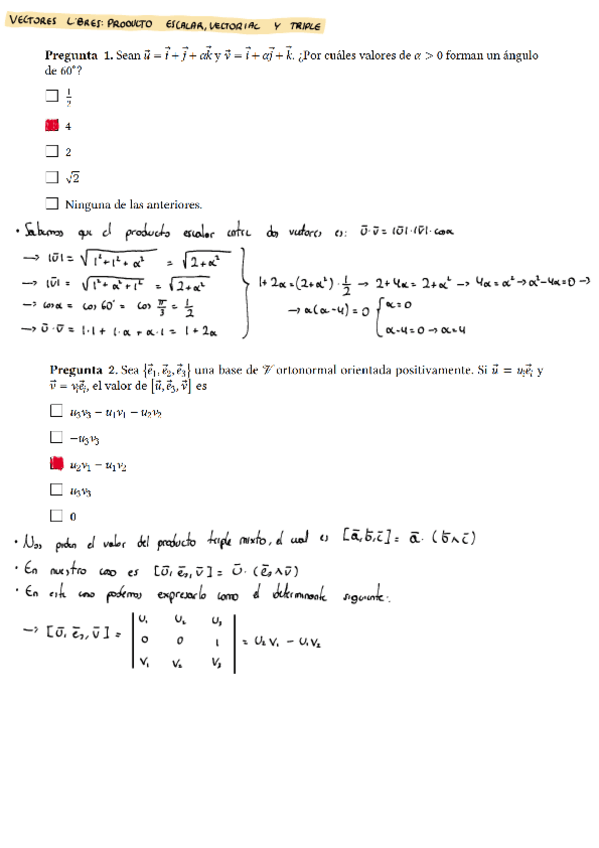 VECTORES LIBRES: PRODUCTO ESCALAR, VECTORIAL Y TRIPLE
Pregunta 1. Sean u⃗ = i⃗ + j⃗ + αk⃗ y v⃗ = i⃗ + αj⃗ + k⃗. ¿Por cuáles valores de α > 0 forman un ángulo
de 60°?
4
2
√2
Ninguna de las anteriores.
• Sabemos que el producto escalar entre dos vectores es: ū·v̄ = |ū|·|v̄|·cosα
→ |ū| = √(1²+1²+α²) = √(2+α²)
→ |v̄| = √(1²+α²+1²) = √(2+α²)
→ cosα = cos 60° = cos π/3 = 1/2
→ ū·v̄ = 1·1 + 1·α + α·1 = 1+2α
1+2α = (2+α²)·1/2 → 2+4α = 2+α² → 4α = α² → α²-4α = 0 →
→ α(α-4) = 0 { α = 0
α-4 = 0 → α = 4
Pregunta 2. Sea {e⃗₁, e⃗₂, e⃗₃} una base de 𝒱 ortonormal orientada positivamente. Si u⃗ = uᵢe⃗ᵢ y
v⃗ = vᵢe⃗ᵢ, el valor de [u⃗, e⃗₃, v⃗] es
u₃v₃ − u₁v₁ − u₂v₂
−u₃v₃
u₂v₁ − u₁v₂
u₃v₃
0
• Nos piden el valor del producto triple mixto, el cual es [ā,b̄,c̄] = ā·(b̄∧c̄)
• En nuestro caso es [ū, ē₃, v̄] = ū·(ē₃∧v̄)
• En este caso podemos expresarlo como el determinante siguiente:
→ [ū, ē₃, v̄] = | u₁ u₂ u₃ |
| 0 0 1 | = u₂v₁ − u₁v₂
| v₁ v₂ v₃ |